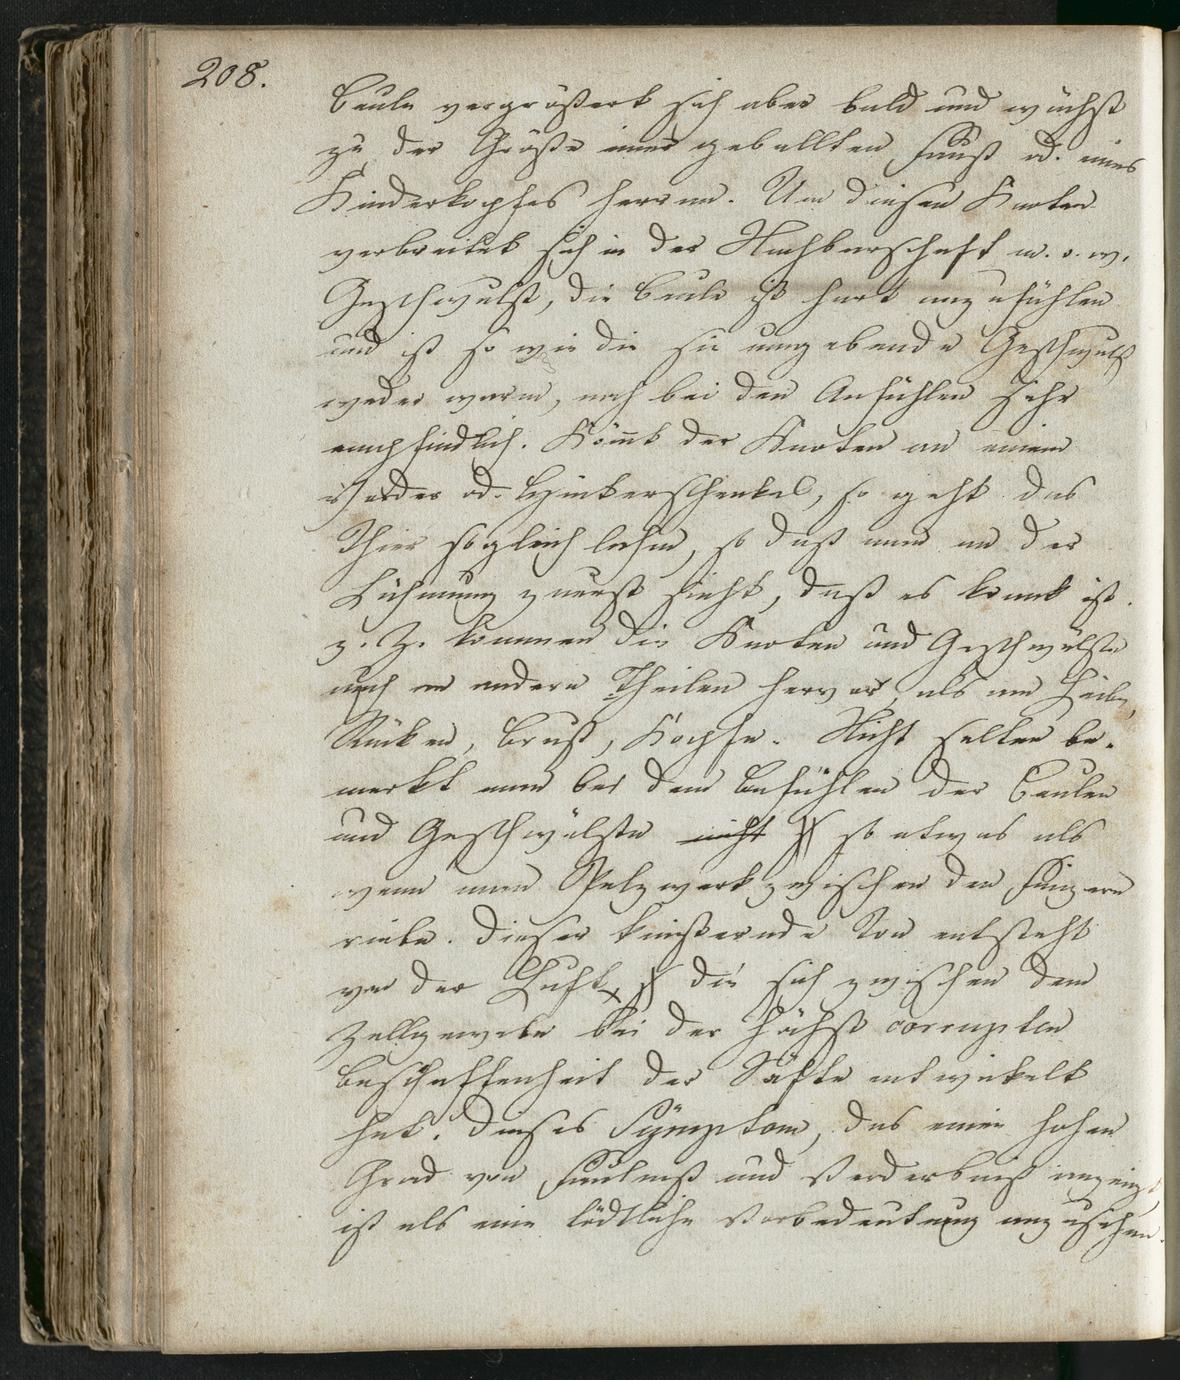 208.
Beule vergrößert sich aber bald und wächst
zu der Größe einer geballten Faust od. eines
Kinderkopfes heran. Um diesen Knoten
verbreitet sich in der Nachbarschaft
Geschwulst, die Beule ist hart anzufühlen
und ist so wie die sie umgebende Geschwulst
weder warm, noch bei den Anfühlen sehr
empfindlich. Kömt der Knoten an einem
Vorder od. Hinterschenkel, so geht das
Thier sogleich lahm, so daß man an der
Lähmung zuerst sieht, daß es krank ist.
z. Z. kommen die Knoten und Geschwülste
auch an andern Theilen hervor, als am Leibe,
Rücken, Brust, Kopfe. Nicht selten be-
merkt man bei dem Befühlen der Beulen
und Geschwülste nicht so etwas als
wenn man Pelzwerk zwischen den Fingern
riebe. Dieser knisternde Ton entsteht
von der Luft, die sich zwischen dem
Zellgewebe bei der höchst corrupten
Beschaffenheit der Säfte entwickelt
hat. Dieses Sÿmptom, das einen hohen
Grad von Fäulniß und Verderbniß anzeigt,
ist als eine tödtliche Vorbedeutung anzusehen.